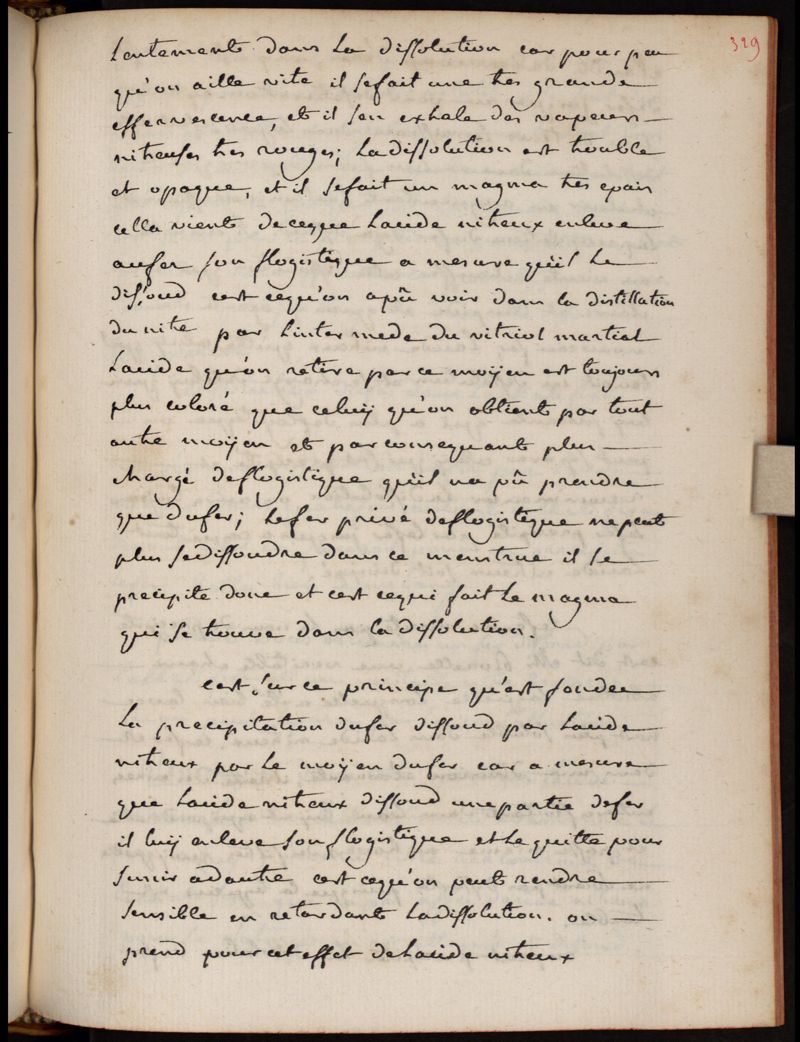 329
Lentements dans La dissolution car pour peu
qu'on aille vite il se fait une tres grande
effervescence, et il s'en exhale des vapeurs
nitreuses tres rouges; La dissolution est trouble
et opaque, et il se fait un magma tres epais
cella vients de ceque Lacide nitreux enleve
aufer son flogistique a mesure qu'il Le
dissoud cest cequ'on a pû voir dans la distillation
du nitre par Linter mede du vitriol martial
Lacide qu'on retire par ce moÿen est toujours
plus coloré que celuÿ qu'on obtients par tout
autre moÿen et par consequants plus
chargé deflogistique qu'il na pû prendre
que dufer; Le fer privé deflogistique ne peut
plus se dissoudre dans ce menstrue il se
precipite donc et cest cequi fait Le magma
qui se trouve dans la dissolution.
cest sur ce principe qu'est fondée
La precipitation dufer dissoud par Lacide
nitreux par Le moÿen dufer car a mesure
que Lacide nitreux dissoud une partie defer
il luÿ enleve son flogistique et Le quitte pour
s'unir a dautre cest cequ'on peut rendre
sensible en retardants La dissolution. on
prend pour cet effet de Lacide nitreux